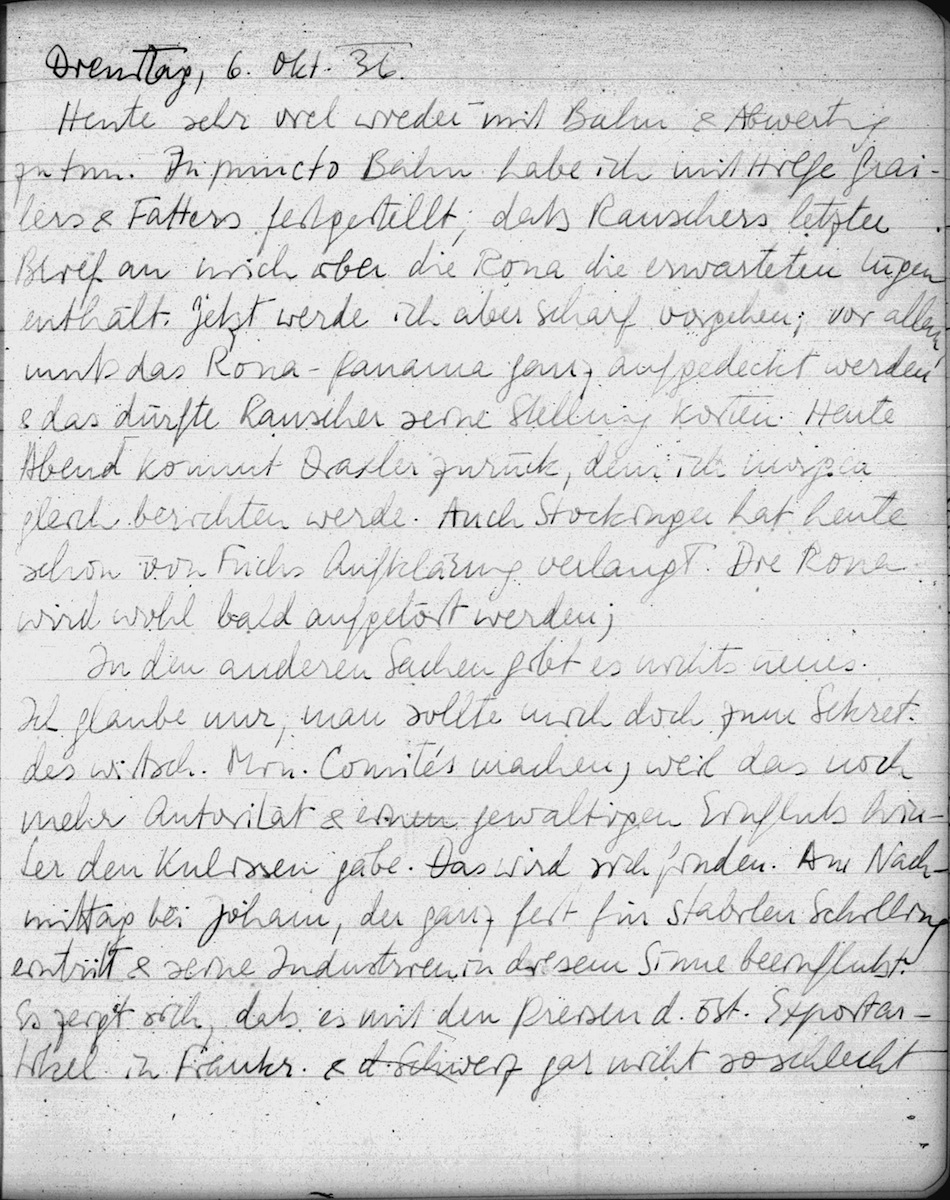 Dienstag, 6. Okt. 36.
Heute sehr viel wieder mit Bahn & Abwertung
zu tun. In puncto Bahn habe ich mit Hilfe Grai-
lers & Fatters festgestellt, daß Rauschers letzter
Brief an mich über die Rona die erwarteten Lügen
enthält. Jetzt werde ich aber scharf vorgehen; vor allem
muß das Rona-Panama ganz aufgedeckt werden
& das dürfte Rauscher seine Stellung kosten. Heute
Abend kommt Draxler zurück, dem ich morgen
gleich berichten werde. Auch Stockinger hat heute
schon von Fuchs Aufklärung verlangt. Die Rona
wird wohl bald aufgelöst werden;
In den anderen Sachen gibt es nichts neues.
Ich glaube nur, man sollte mich doch zum Sekret.
des wirtsch. Min. Comités machen, weil das noch
mehr Autorität & einen gewaltigen Einfluß hin-
ter den Kulissen gäbe. Das wird sich finden. Am Nach-
mittag bei Joham, der ganz fest für stabilen Schilling
eintritt & seine Industrien in diesem Sinne beeinflußt.
Es zeigt sich, daß es mit den Preisen d. öst. Exportar-
tikel in Frankr. & d. Schweiz gar nicht so schlecht